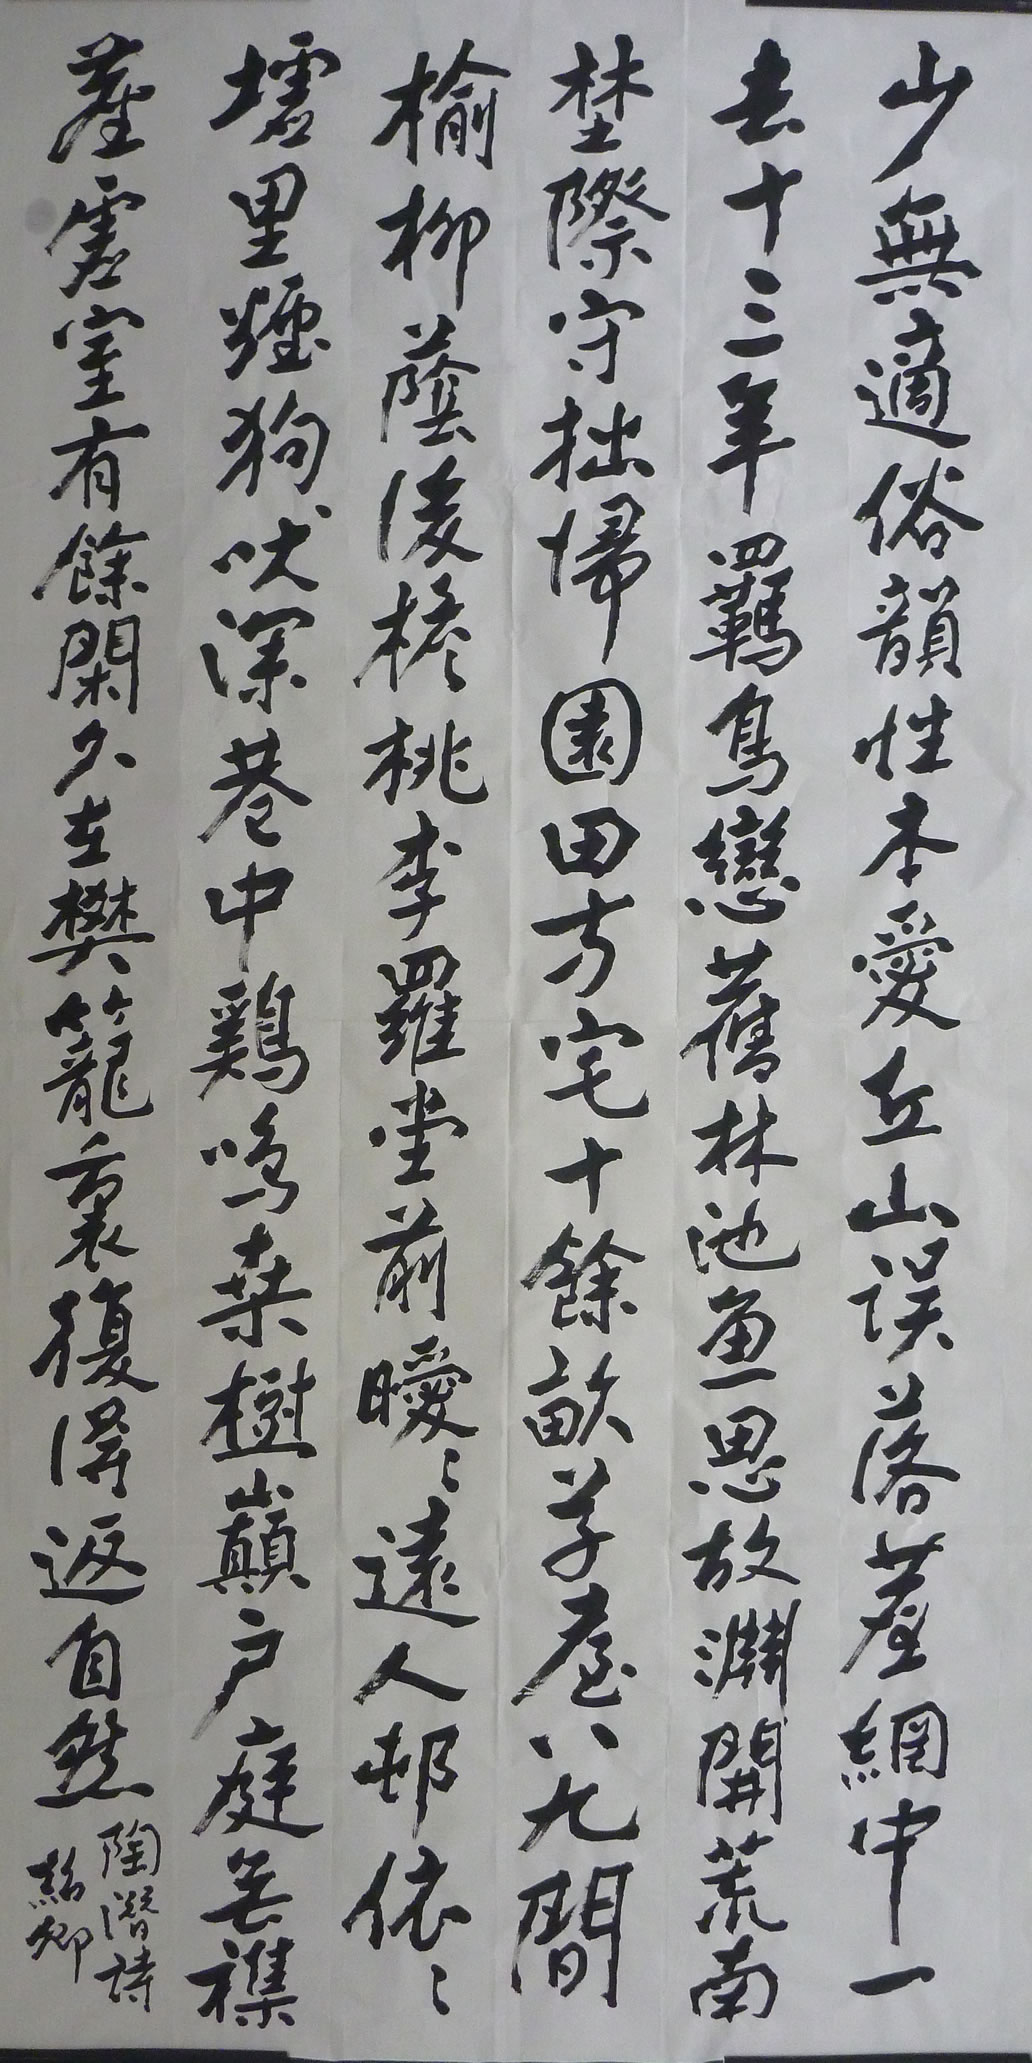 少無適俗韻性本愛丘山误落塵網中一
去十三年羁鳥戀舊林池魚思故淵開荒南
埜際守拙歸園田方宅十餘畝草屋八九間
榆柳蔭後檐桃李羅堂前曖〻遠人邨依〻
墟里煙狗吠深巷中鷄鳴桑樹巔户庭無襍
塵虚室有餘閑久在樊籠裏復得返自然
陶潛詩
卿